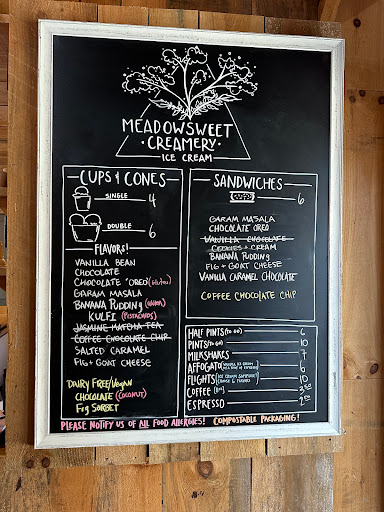 MEADOWSWEET
CREAMERY
ICE CREAM
CUPS & CONES
SINGLE 4
DOUBLE 6
FLAVORS!
VANILLA BEAN
CHOCOLATE
CHOCOLATE "OREO (Gluten)
GARAM MASALA
BANANA PUDDING (GLUTEN)
KULFI (PISTACHIOS)
JASMINE MATCHA TEA
COFFEE CHOCOLATE CHIP
SALTED CARAMEL
FIG + GOAT CHEESE
DAIRY FREE/VEGAN
CHOCOLATE (COCONUT)
FIG SORBET
SANDWICHES
6
GARAM MASALA
CHOCOLATE OREO
VANILLA CHOCOLATE
COOKIES + CREAM
BANANA PUDDING
FIG + GOAT CHEESE
VANILLA CARAMEL CHOCOLATE
COFFEE CHOCOLATE CHIP
HALF PINTS (TO GO) 6
PINTS (TO GO) 10
MILKSHAKES 7
AFFOGATO 6
FLIGHTS (ICE CREAM SAMPLER! CHOOSE 5 FLAVORS) 10
COFFEE 3.50
ESPRESSO 2.50
PLEASE NOTIFY US OF ALL FOOD ALLERGIES! COMPOSTABLE PACKAGING!